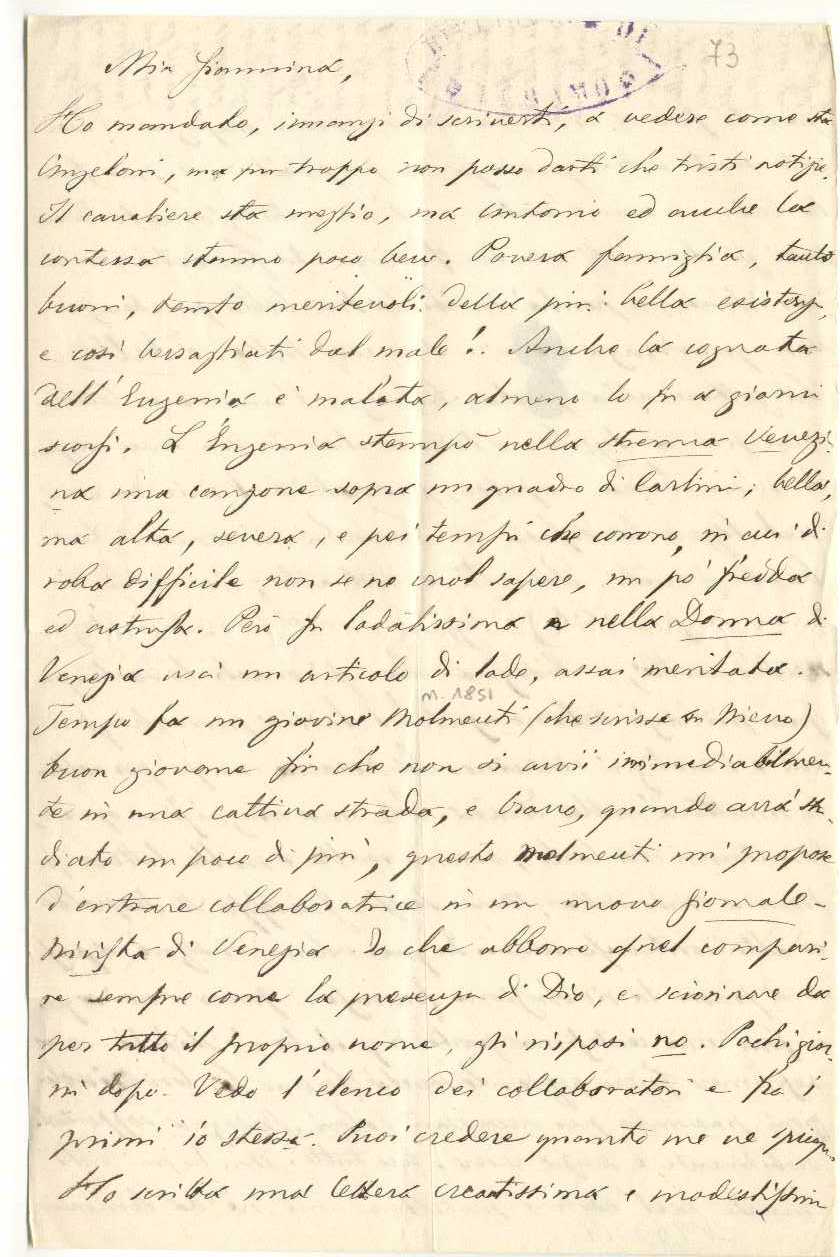 73
Mia Giannina,
Ho mandato, innanzi di scriverti, a vedere come sta
Angeloni, ma pur troppo non posso darti che tristi notizie.
Il cavaliere sta meglio, ma Antonio ed anche la
contessa stanno poco bene. Povera famiglia, tanto
buoni, tanto meritevoli della più bella esistenza,
e così bersagliati dal male! Anche la cognata
dell'Eugenia è malata, almeno lo fu a giorni
scorsi. L'Eugenia stampò nella strenna Venezi-
na una canzone sopra un quadro di Carlini; bella,
ma alta, severa, e pei tempi che corrono, in cui di
roba difficile non se ne vuol sapere, un pò fredda
ed astrusa. Però fu lodatissima e nella Donna di
Venezia uscì un articolo di lode, assai meritata.
n. 1851
Tempo fa un giovine Molmenti (che scrisse su Nievo)
buon giovane fin che non si avvii immediabilmen-
te in una cattiva strada, e bravo, quando avrà stu-
diato un poco di più, questo Molmenti mi propose
d'entrare collaboratrice in un nuovo Giornale-
Rivista di Venezia Io che abborro quel compari-
re sempre come la presenza di Dio, e sciorinare da
per tutto il proprio nome, gli risposi no. Pochi gior-
ni dopo Vedo l'elenco dei collaboratori e fra i
primi io stessa. Puoi credere quanto me ne spiacque
Ho scritta una lettera creatissima e modestissim